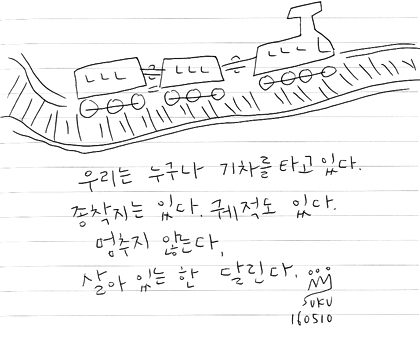 우리는 누구나 기차를 타고 있다.
종착지는 있다. 궤적도 있다.
멈추지 않는다,
살아 있는 한 달린다.
SUKU
160510